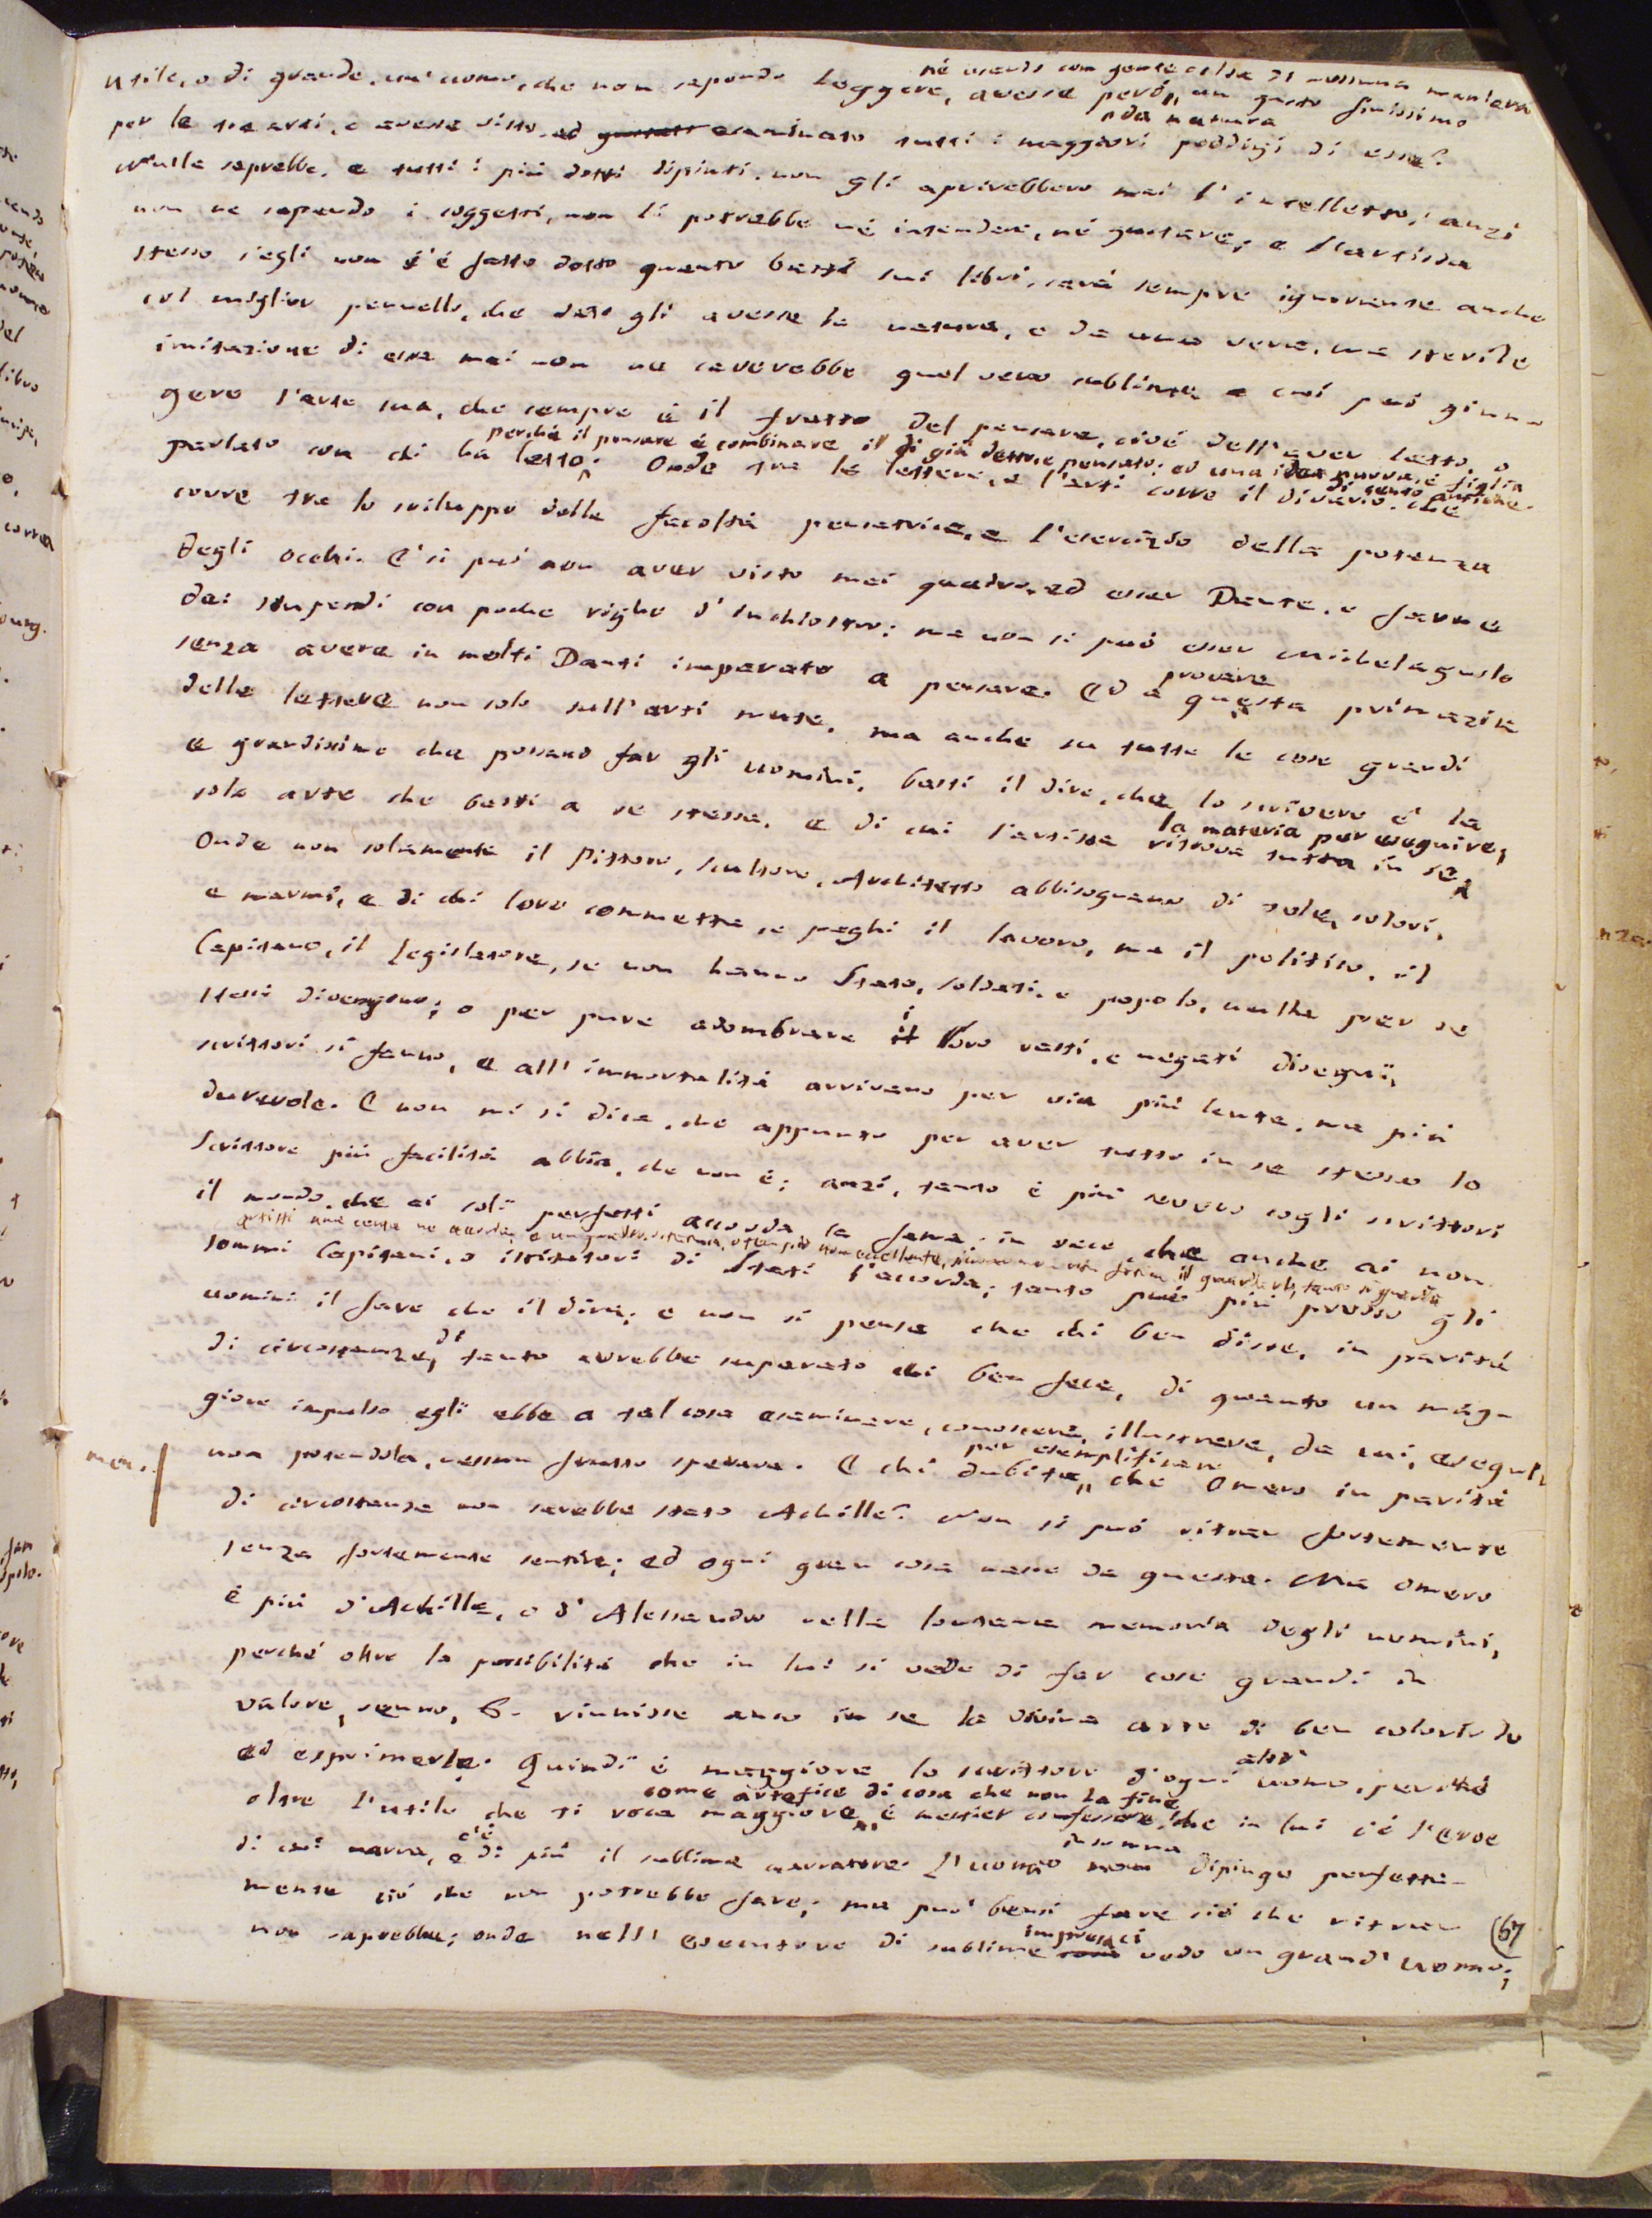 né usando con gente colta di nessuna maniera
utile, o di grande, un' uomo, che non sapendo leggere, avesse però, un gusto finissimo
da natura
per le tre arti, e avesse visto, ed esaminato tutti i maggiori prodigj di esse?
Nulla saprebbe, e tutti i più dotti dipinti, non gli aprirebbero mai l'intelletto; anzi
non ne sapendo i soggetti, non li potrebbe né intendere, né gustare; e l'artista
stesso s'egli non s'è fatto dotto quanto basti sui libri, sarà sempre ignorante anche
col miglior pennello, che dato gli avesse la natura, e da una vera, ma sterile
imitazione di essa mai non ne caverebbe quel vero sublime, a cui può giun-
gere l'arte sua, che sempre è il frutto del pensare, cioé dell'aver letto, o
perché il pensare é combinare il di già detto, e pensato: ed una idea nuova, é figlia
di cento antiche.
parlato con chi ha letto; Onde tra le lettere, e l'arti corre il divario, che
corre tra lo sviluppo della facoltà pensatrice, e l'esercizio della potenza
degli occhi. E si può non aver visto mai quadro, ed esser Dante, e farne
dei stupendi con poche righe d'inchiostro: ma non si può esser Michelagnolo
senza avere in molti Danti imparato a pensare. Ed a questa primazia
provare
delle lettere non solo sull'arti mute, ma anche su tutte le cose grandi
e grandissime che possano far gli uomini, basti il dire, che lo scrivere é la
sola arte che basti a se stessa, e di cui l'artista ritrova tutta in se
la materia per eseguire;
Onde non solamente il Pittore, Scultore, Architetto abbisognano di tele, colori,
e marmi, e di chi loro commetta, e paghi il lavoro, ma il politico, il
Capitano, il Legislatore, se non hanno Stato, soldati, e popolo, nulla per se
stessi divengono; o per pure adombrare i loro vasti, e negati disegni,
scrittori si fanno, e all'immortalità arrivano per via più lenta, ma più
durevole. E non mi si dica, che appunto per aver tutto in se stesso lo
Scrittore più facilità abbia, che non é; anzi, tanto é più severo cogli scrittori
il mondo, che ai soli perfetti accorda la fama; in vece, che anche ai non
sommi Capitani, o istitutori di Stati l'accorda; tanto può più presso gli
uomini il fare che il dire; e non si pensa che chi ben disse, in parità
di circostanze, di tanto avrebbe superato chi ben fece, di quanto un mag-
giore impulso egli ebbe a tal cosa esaminare, conoscere, illustrare, da cui, eseguir
non potendola, nessun frutto sperava. E chi dubita, che Omero in parità
per esemplificare
di circostanze non sarebbe stato Achille? Non si può ritrar fortemente
senza fortemente sentire; ed ogni gran cosa nasce da questa. Ma Omero
é più d'Achille, o d'Alessandro nella lontana memoria degli uomini,
perché oltre la possibilità che in lui si vede di far cose grandi in
valore, senno, &. riunisce anco in se la divina arte di ben colorirle
ed esprimerle. Quindi é maggiore lo scrittore d'ogni altr' uomo, perché
oltre l'utile che si reca maggiore, é mestier confessare, che in lui c'é l'eroe
come artefice di cosa che non ha fine
di cui narra, e c'é di più il sublime narratore. L'uomo insomma dipinge perfetta-
mente ciò che non potrebbe fare; ma può bensì fare ciò che ritrar
non saprebbe; onde nell' esecutore di sublime impresa ci vedo un grand' uomo;
67